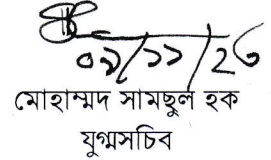 ০৯/১১/২৩
মোহাম্মদ সামছুল হক
যুগ্মসচিব